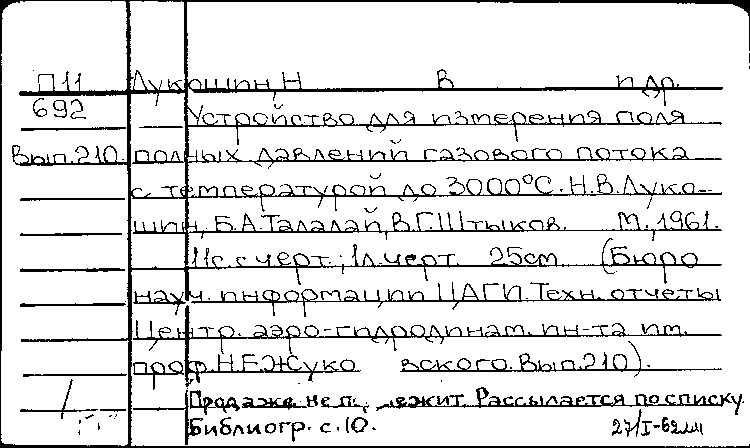 П11 Лукошин, Н В и др.
692 Устройство для измерения поля
Вып.210. полных давлений газового потока
с температурой до 3000°С. Н.В.Луко-
шин, Б.А.Талалай, В.Г.Штыков. М., 1961.
11с. с черт.; 1л. черт. 25см. (Бюро
науч. информации ЦАГИ. Техн. отчеты
Центр. аэро-гидродинам. ин-та им.
проф. Н.Е.Жуко вского. Вып.210).
Продаже не п лежит. Рассылается по списку
Библиогр. с.10. 27/I-62